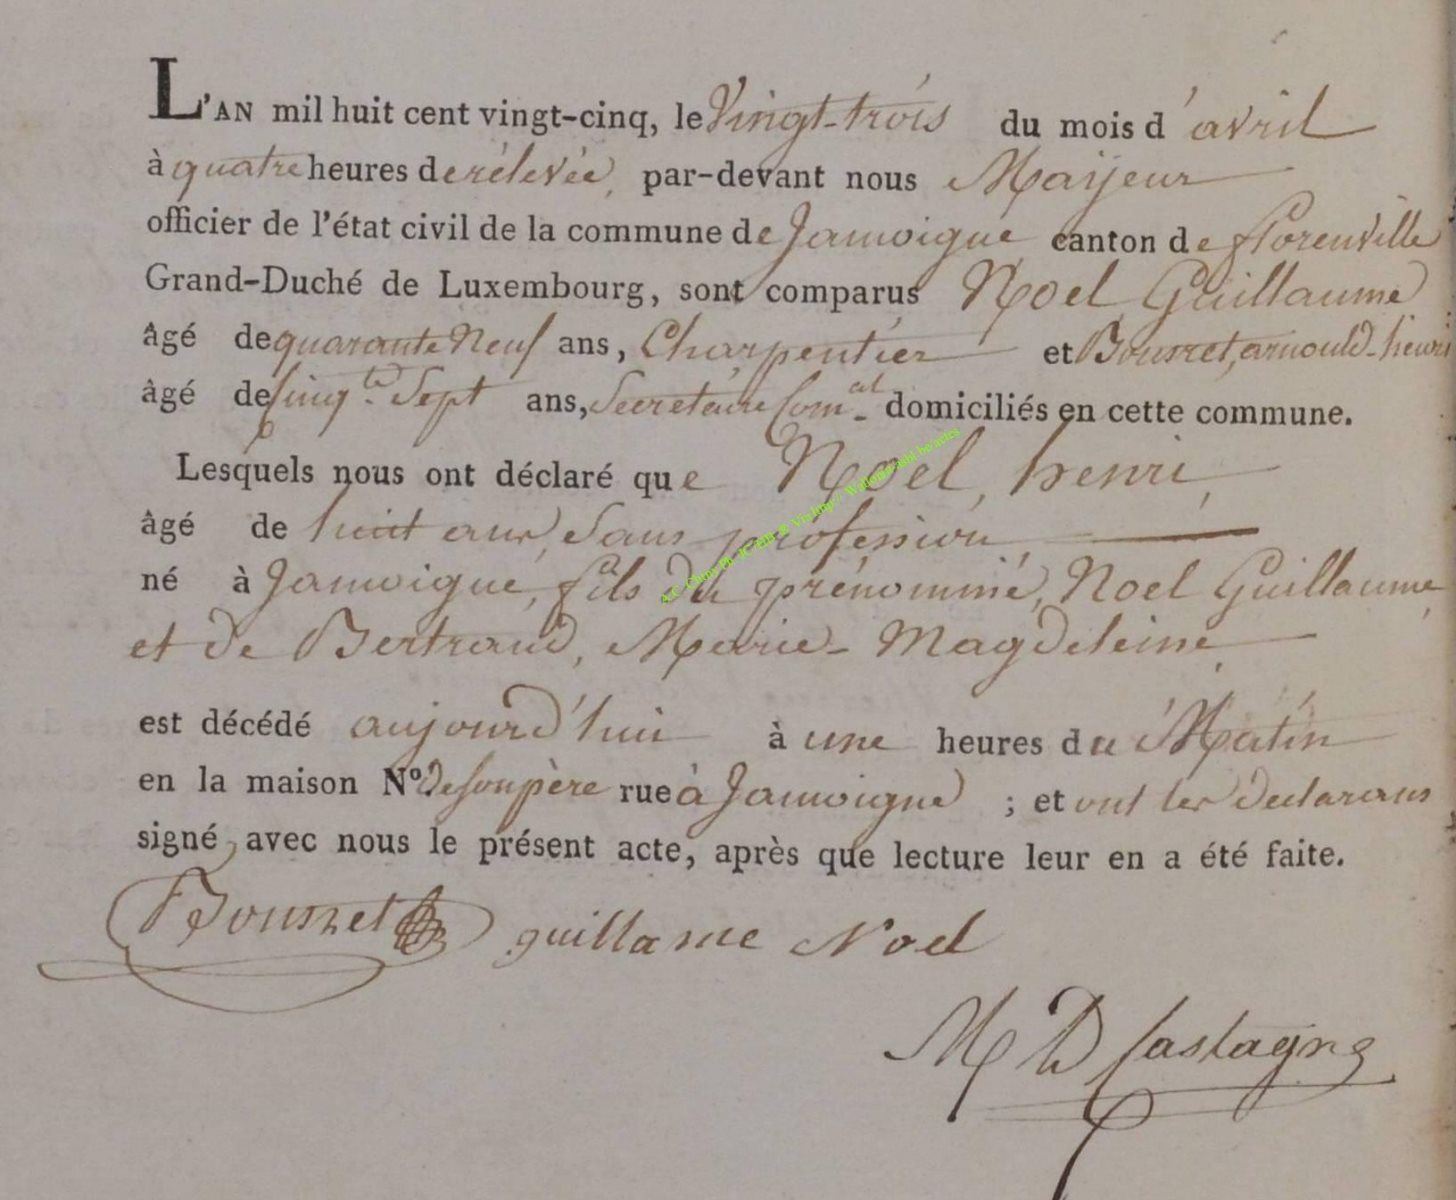 L'AN mil huit cent vingt-cinq, le Vingt-trois du mois d'avril
à quatre heures de rélevée, par-devant nous Maÿeur
officier de l'état civil de la commune de Jamoigne canton de florenville
Grand-Duché de Luxembourg, sont comparus Noel Guillaume
âgé de quarante Neuf ans, Charpentier et Bousret, arnould-henri
âgé de Cinqte Sept ans, Secretaire Comal domiciliés en cette commune.
Lesquels nous ont déclaré que Noel, henri,
âgé de huit ans, Sans profession,
né à Jamoigne, fils du prénommé, Noel Guillaume
et de Bertrand, Marie-Magdeleine,
est décédé aujourd'hui à une heures du Matin
en la maison No. de son père rue à Jamoigne ; et ont les declarans
signé, avec nous le présent acte, après que lecture leur en a été faite.
Bousret guillame Noel
M D Castagne